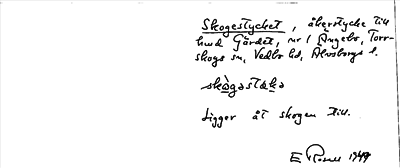 Skogestycket, åkerstycke till
hmd Gärdet, nr 1 Ängebo, Torr-
skogs sn, Vedbo hd, Älvsborgs l.
skògəstəkə
Ligger åt skogen till.
E 1949